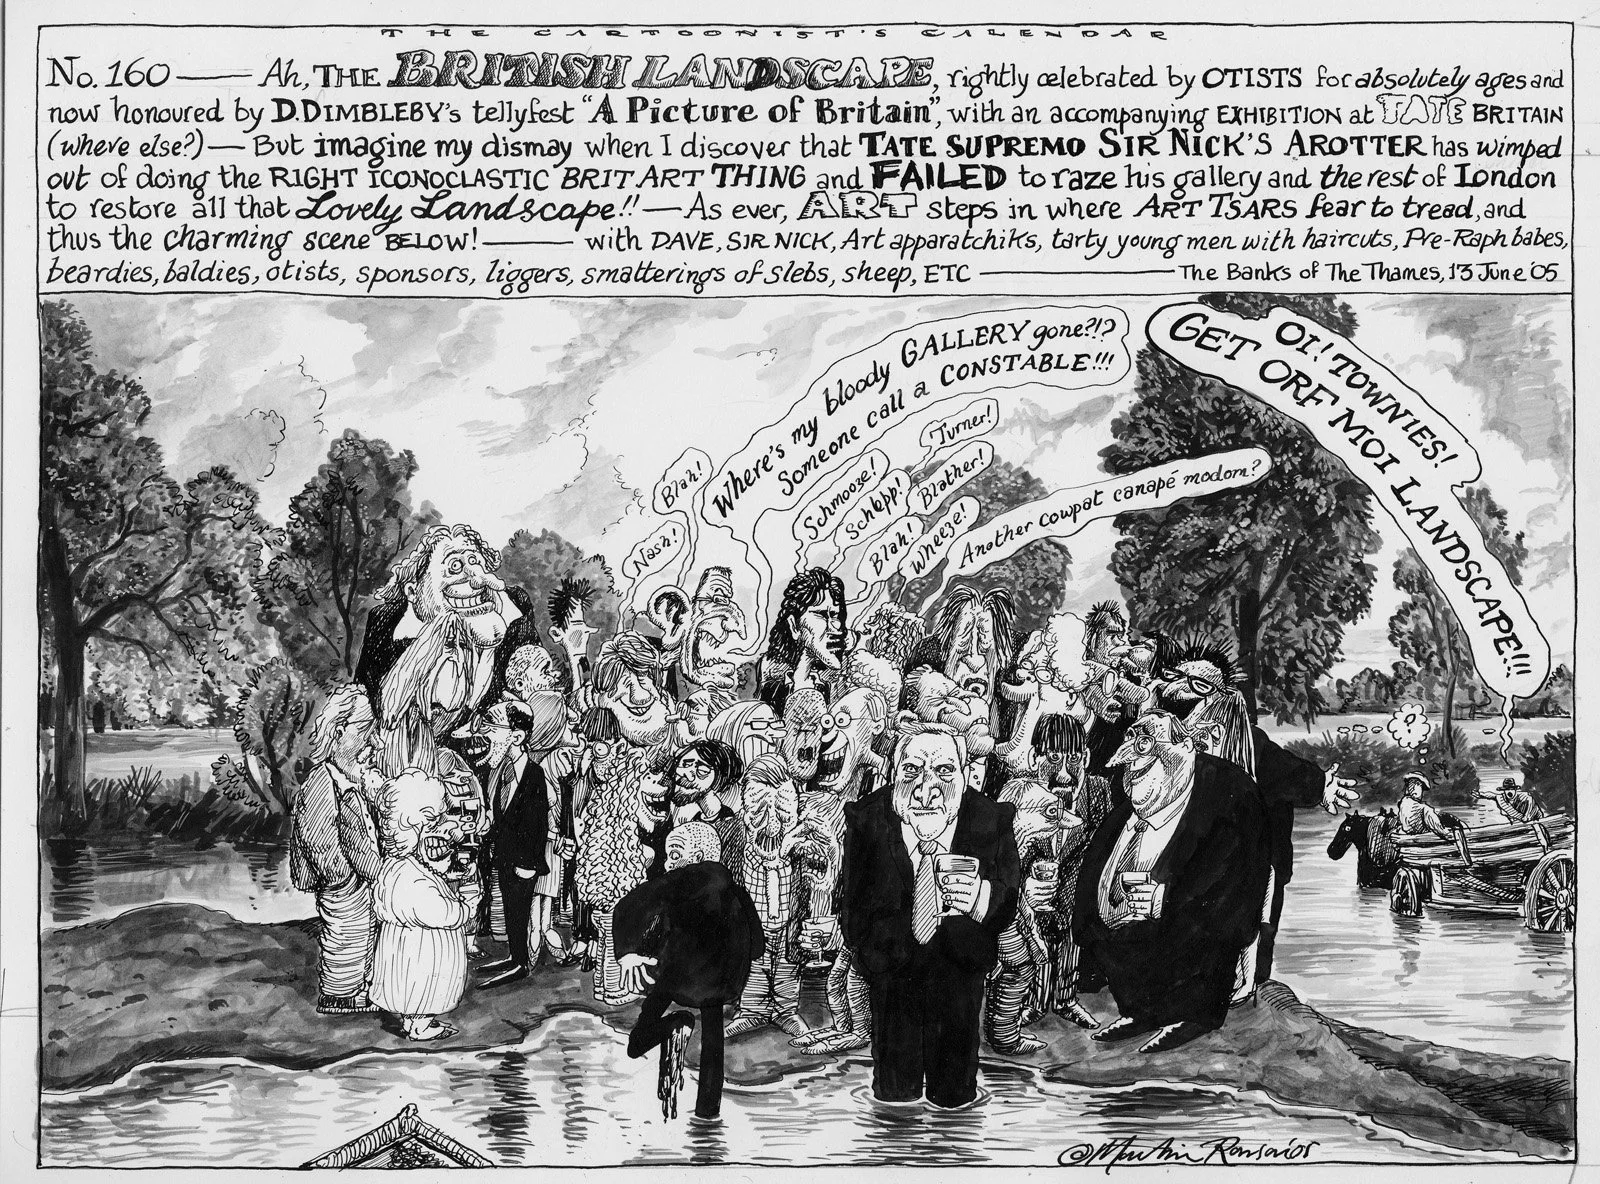 THE CARTOONIST'S CALENDAR
No. 160 — Ah, THE BRITISH LANDSCAPE, rightly celebrated by OTISTS for absolutely ages and
now honoured by D.DIMBLEBY's tellyfest "A Picture of Britain", with an accompanying EXHIBITION at TATE BRITAIN
(where else?) — But imagine my dismay when I discover that TATE SUPREMO SIR NICK'S AROTTER has wimped
out of doing the RIGHT ICONOCLASTIC BRIT ART THING and FAILED to raze his gallery and the rest of London
to restore all that Lovely Landscape!! — As ever, ART steps in where ART TSARS fear to tread, and
thus the charming scene BELOW! — with DAVE, SIR NICK, Art apparatchiks, tarty young men with haircuts, Pre-Raph babes,
beardies, baldies, otists, sponsors, liggers, smatterings of slebs, sheep, ETC — The Banks of The Thames, 13 June '05
Nash!
Blah!
Where's my bloody GALLERY gone?!?
Someone call a CONSTABLE!!!
Schmooze!
Schlepp!
Turner!
Blather!
Blah!
Wheeze!
Another cowpat canapé modom?
OI! TOWNIES!
GET ORF MOI LANDSCAPE!!!
©Martin Rowson '05